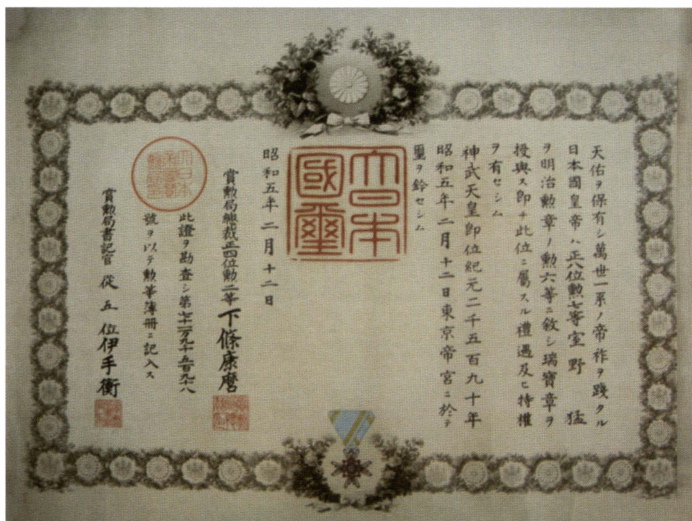 天佑ヲ保有シ萬世一系ノ帝祚ヲ踐タル
日本國皇帝ハ正八位勲七等室野猛
ヲ明治勲章ノ勲六等ニ敘シ瑞寶章ヲ
授與ス卽チ此位ニ屬スル禮遇及ヒ特權
ヲ有セシム
神武天皇卽位紀元二千五百九十年
昭和五年二月十二日東京帝宮ニ於テ
璽ヲ鈐セシム
大日本
國璽
昭和五年二月十二日
賞勲局總裁正四位勲二等下條康麿
此證ヲ勘査シ第七十二万九千五百九十八
號ヲ以テ勲等簿冊ニ記入ス
賞勲局書記官從五位伊手衡